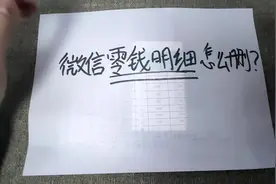 微信零钱明细怎么删?